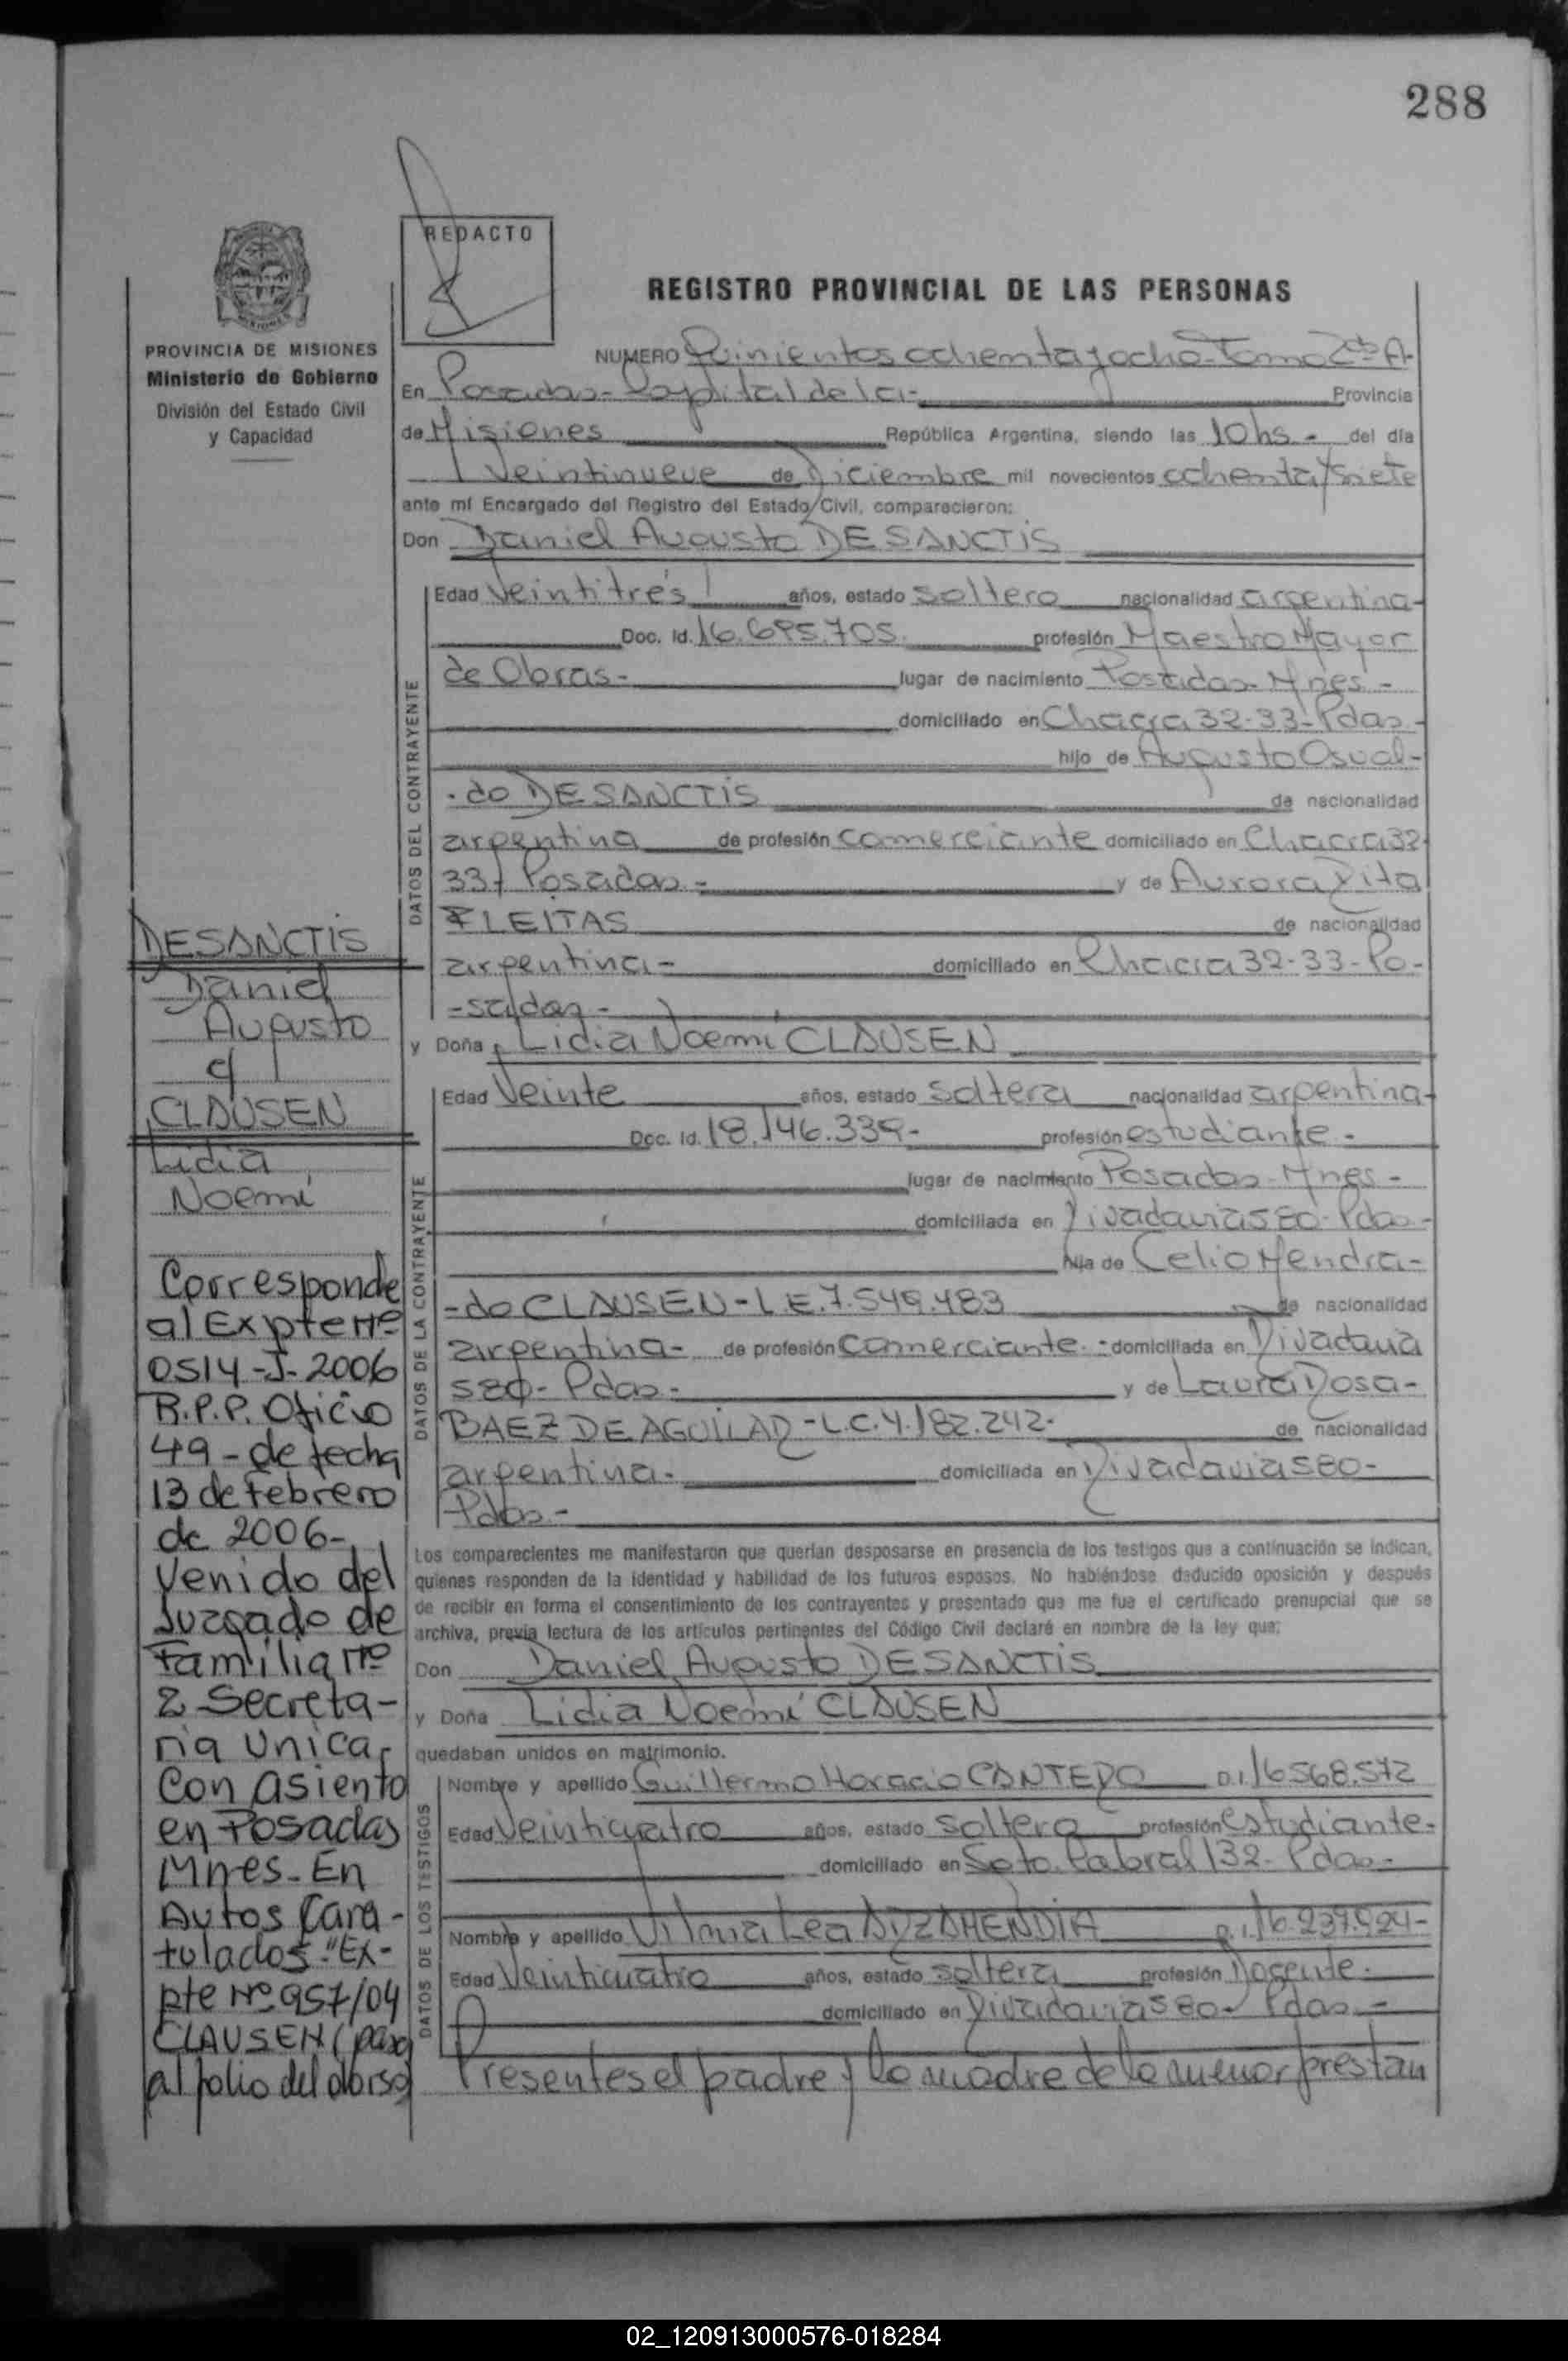 288
REDACTO
REGISTRO PROVINCIAL DE LAS PERSONAS
PROVINCIA DE MISIONES
Ministerio de Gobierno
División del Estado Civil
y Capacidad
NUMERO Quinientos ochenta y ocho - Tomo 2do A-
En Posadas - Capital de la - Provincia
de Misiones República Argentina, siendo las 10hs - del día
Veintinueve de Diciembre mil novecientos ochenta y siete
ante mí Encargado del Registro del Estado Civil, comparecieron:
Don Daniel Augusto DESANCTIS
DATOS DEL CONTRAYENTE
Edad Veintitrés años, estado soltero nacionalidad argentina-
Doc. Id. 16.695.705. profesión Maestro Mayor
de Obras- lugar de nacimiento Posadas-Mnes-
domiciliado en Chacra 32-33-Pdas-
hijo de Augusto Osval-
-do DESANCTIS de nacionalidad
argentina de profesión comerciante domiciliado en Chacra 32-
33- Posadas- y de Aurora Rita
FLEITAS de nacionalidad
argentina- domiciliado en Chacra 32-33-Po-
-sadas-
y Doña Lidia Noemí CLAUSEN
DATOS DE LA CONTRAYENTE
Edad Veinte años, estado soltera nacionalidad argentina-
Doc. Id. 18.146.339- profesión estudiante-
lugar de nacimiento Posadas-Mnes-
domiciliada en Rivadavia 580-Pdas-
hija de Celio Mendra-
-do CLAUSEN-L.E.7.549.483 de nacionalidad
argentina- de profesión comerciante- domiciliada en Rivadavia
580- Pdas- y de Laura Rosa-
BAEZ DE AGUILAR-L.C.4.182.242- de nacionalidad
argentina- domiciliada en Rivadavia 580-
Pdas-
Los comparecientes me manifestaron que querían desposarse en presencia de los testigos que a continuación se indican,
quienes responden de la identidad y habilidad de los futuros esposos. No habiéndose deducido oposición y después
de recibir en forma el consentimiento de los contrayentes y presentado que me fue el certificado prenupcial que se
archiva, previa lectura de los artículos pertinentes del Código Civil declaré en nombre de la ley que:
Don Daniel Augusto DESANCTIS
y Doña Lidia Noemí CLAUSEN
quedaban unidos en matrimonio.
DATOS DE LOS TESTIGOS
Nombre y apellido Guillermo Horacio CANTERO D.I. 16.568.572
Edad Veinticuatro años, estado soltero profesión estudiante-
domiciliado en Sgto. Cabral 132- Pdas-
Nombre y apellido Vilma Lea ARZAMENDIA D.I. 16.239.924-
Edad Veinticuatro años, estado soltera profesión Docente-
domiciliado en Rivadavia 580- Pdas-
Presentes el padre y la madre de la menor prestan
DESANCTIS
Daniel
Augusto
c/
CLAUSEN
Lidia
Noemí
Corresponde
al Expte Nº
0514-J-2006
R.P.P. Oficio
49-de fecha
13 de febrero
de 2006-
Venido del
Juzgado de
Familia Nº
2 Secreta-
ria Unica,
Con asiento
en Posadas
Mnes- En
Autos Cara-
tulados "Ex-
pte Nº 957/04
CLAUSEN (pasa
al folio del dorso)
02_120913000576-018284